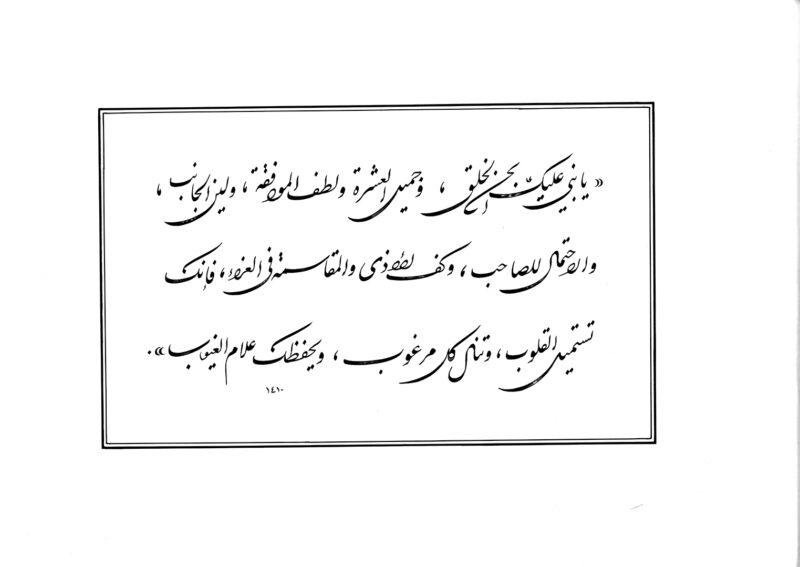 « يا بني عليك بحسن الخلق ، وجميل العشرة ولطف الموافقة ، ولين الجانب ،
والاحتمال للصاحب ، وكف الأذى والمقاسمة في العزاء ، فإنك
تستميل القلوب ، وتنال كل مرغوب ، ويحفظك علام الغيوب ».
١٤١٠